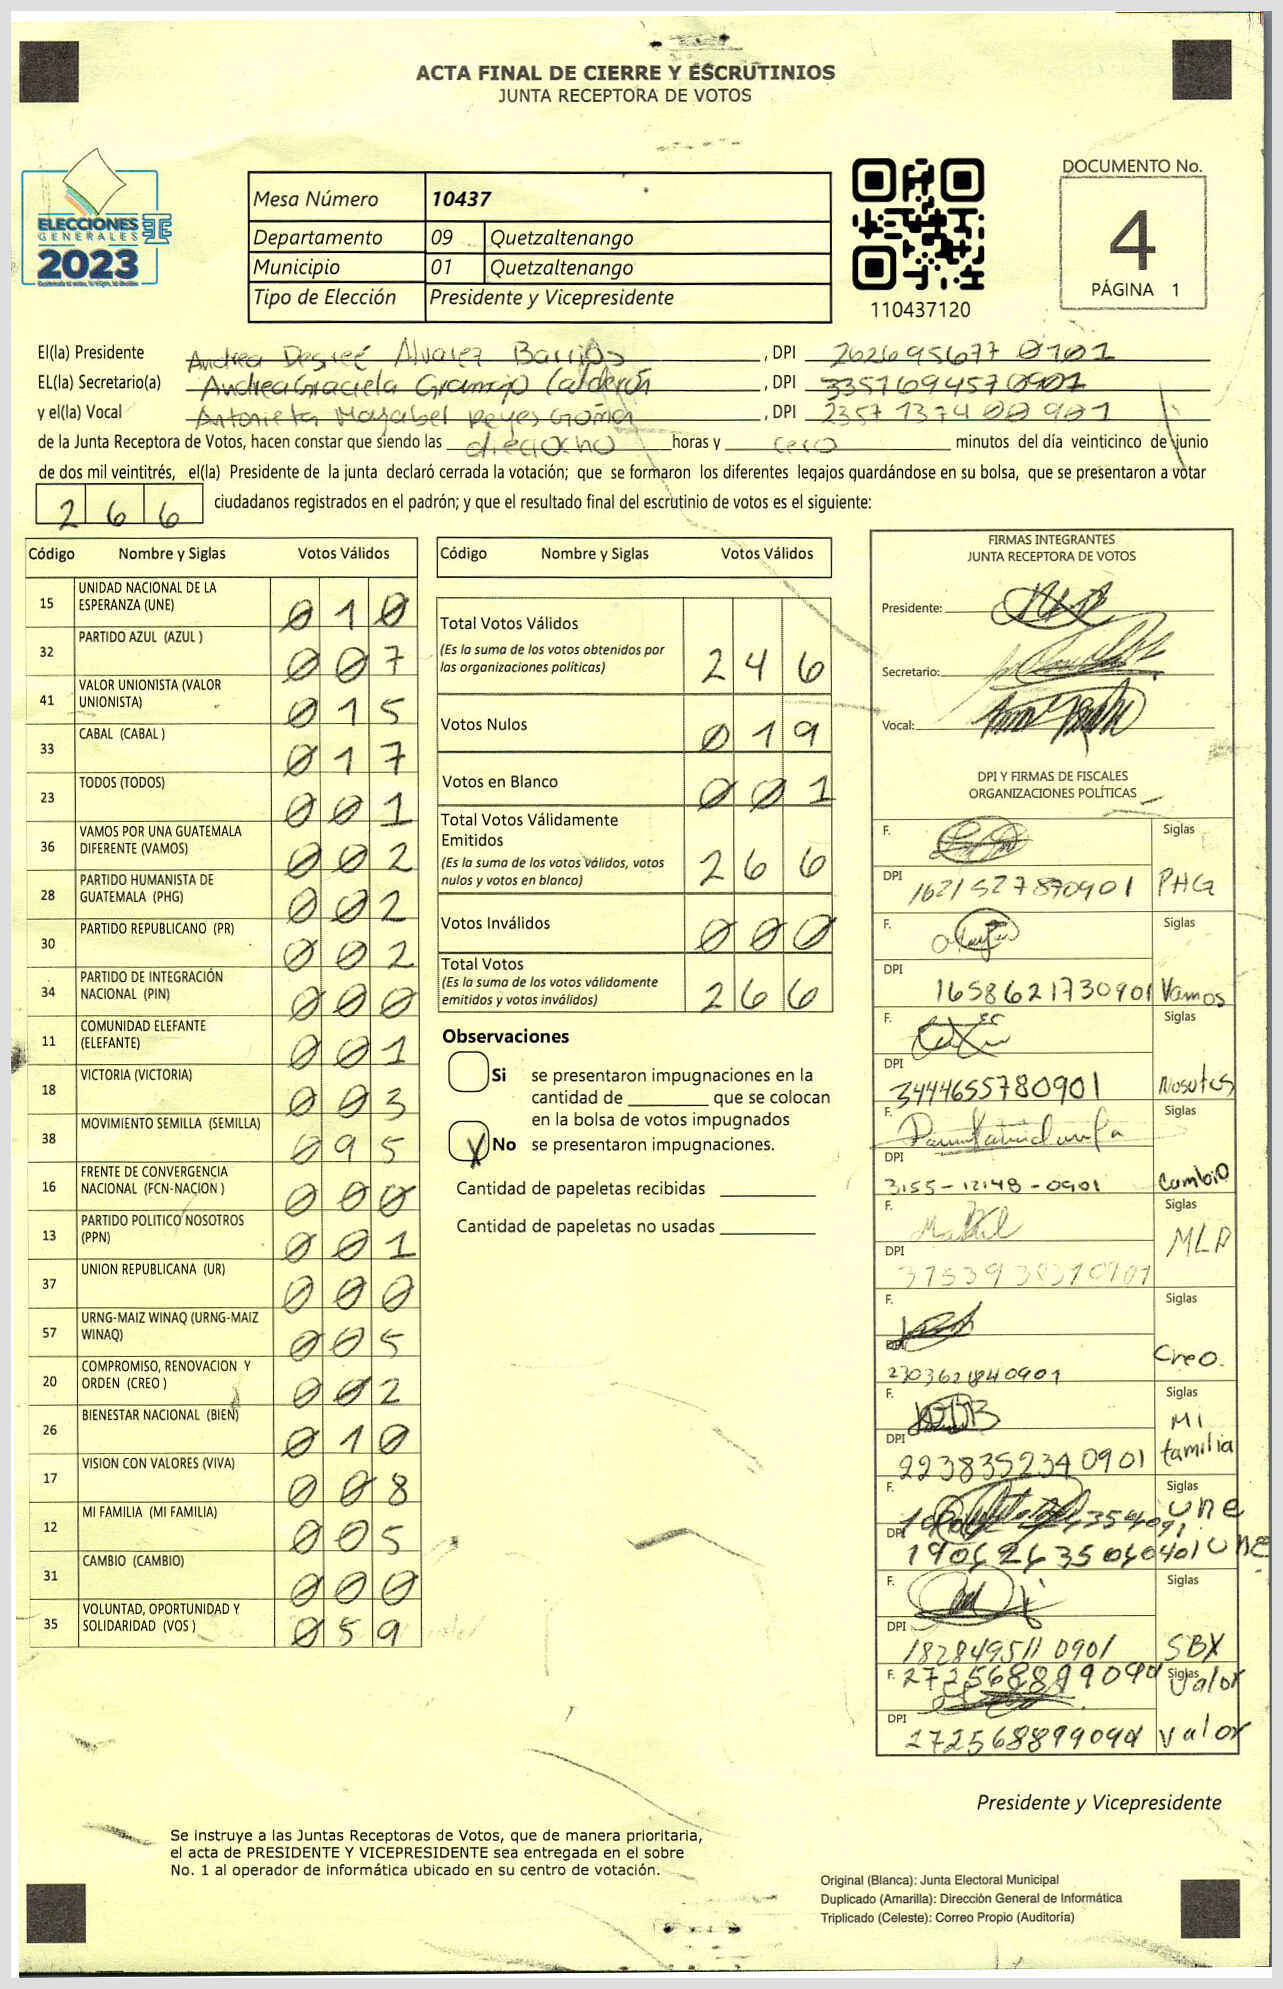 ACTA FINAL DE CIERRE Y ESCRUTINIOS
JUNTA RECEPTORA DE VOTOS
ELECCIONES
GENERALES
2023
Mesa Número 10437
Departamento 09 Quetzaltenango
Municipio 01 Quetzaltenango
Tipo de Elección Presidente y Vicepresidente
110437120
DOCUMENTO No.
4
PÁGINA 1
El(la) Presidente Andrea Desreé Alvarez Barrios, DPI 2626956770101
EL(la) Secretario(a) Andrea Graciela Gramajo Calderón, DPI 3351694570901
y el(la) Vocal Antonieta Reyes, DPI 2357137400901
de la Junta Receptora de Votos, hacen constar que siendo las dieciocho horas y cero minutos del día veinticinco de junio
de dos mil veintitrés, el(la) Presidente de la junta declaró cerrada la votación; que se formaron los diferentes legajos guardándose en su bolsa, que se presentaron a votar
266 ciudadanos registrados en el padrón; y que el resultado final del escrutinio de votos es el siguiente:
Código Nombre y Siglas Votos Válidos
15 UNIDAD NACIONAL DE LA ESPERANZA (UNE) 010
32 PARTIDO AZUL (AZUL ) 007
41 VALOR UNIONISTA (VALOR UNIONISTA) 015
33 CABAL (CABAL ) 017
23 TODOS (TODOS) 001
36 VAMOS POR UNA GUATEMALA DIFERENTE (VAMOS) 002
28 PARTIDO HUMANISTA DE GUATEMALA (PHG) 002
30 PARTIDO REPUBLICANO (PR) 002
34 PARTIDO DE INTEGRACIÓN NACIONAL (PIN) 000
11 COMUNIDAD ELEFANTE (ELEFANTE) 001
18 VICTORIA (VICTORIA) 003
38 MOVIMIENTO SEMILLA (SEMILLA) 095
16 FRENTE DE CONVERGENCIA NACIONAL (FCN-NACION ) 000
13 PARTIDO POLITICO NOSOTROS (PPN) 001
37 UNION REPUBLICANA (UR) 000
57 URNG-MAIZ WINAQ (URNG-MAIZ WINAQ) 005
20 COMPROMISO, RENOVACION Y ORDEN (CREO ) 002
26 BIENESTAR NACIONAL (BIEN) 010
17 VISION CON VALORES (VIVA) 008
12 MI FAMILIA (MI FAMILIA) 005
31 CAMBIO (CAMBIO) 000
35 VOLUNTAD, OPORTUNIDAD Y SOLIDARIDAD (VOS ) 059
Código Nombre y Siglas Votos Válidos
Total Votos Válidos 246
(Es la suma de los votos obtenidos por las organizaciones políticas)
Votos Nulos 019
Votos en Blanco 001
Total Votos Válidamente Emitidos 266
(Es la suma de los votos válidos, votos nulos y votos en blanco)
Votos Inválidos 000
Total Votos 266
(Es la suma de los votos válidamente emitidos y votos inválidos)
Observaciones
Si se presentaron impugnaciones en la
cantidad de ________ que se colocan
en la bolsa de votos impugnados
X No se presentaron impugnaciones.
Cantidad de papeletas recibidas
Cantidad de papeletas no usadas
FIRMAS INTEGRANTES
JUNTA RECEPTORA DE VOTOS
Presidente:
Secretario:
Vocal:
DPI Y FIRMAS DE FISCALES
ORGANIZACIONES POLÍTICAS
F. Siglas
DPI 1621527870901 PHG
F. Siglas
DPI 1658621730901 Vamos
F. Siglas
DPI 3444655780901 Nosotros
F. Siglas
DPI 3155-12148-0901 Cambio
F. Siglas
DPI MLP
F. Siglas
DPI 2303621840901 Creo.
F. Siglas
DPI 2238352340901 Mi familia
F. Siglas une
DPI UNE
F. Siglas
DPI 1828495110901 SBX
F. Siglas Valor
DPI Valor
Presidente y Vicepresidente
Se instruye a las Juntas Receptoras de Votos, que de manera prioritaria,
el acta de PRESIDENTE Y VICEPRESIDENTE sea entregada en el sobre
No. 1 al operador de informática ubicado en su centro de votación.
Original (Blanca): Junta Electoral Municipal
Duplicado (Amarilla): Dirección General de Informática
Triplicado (Celeste): Correo Propio (Auditoría)